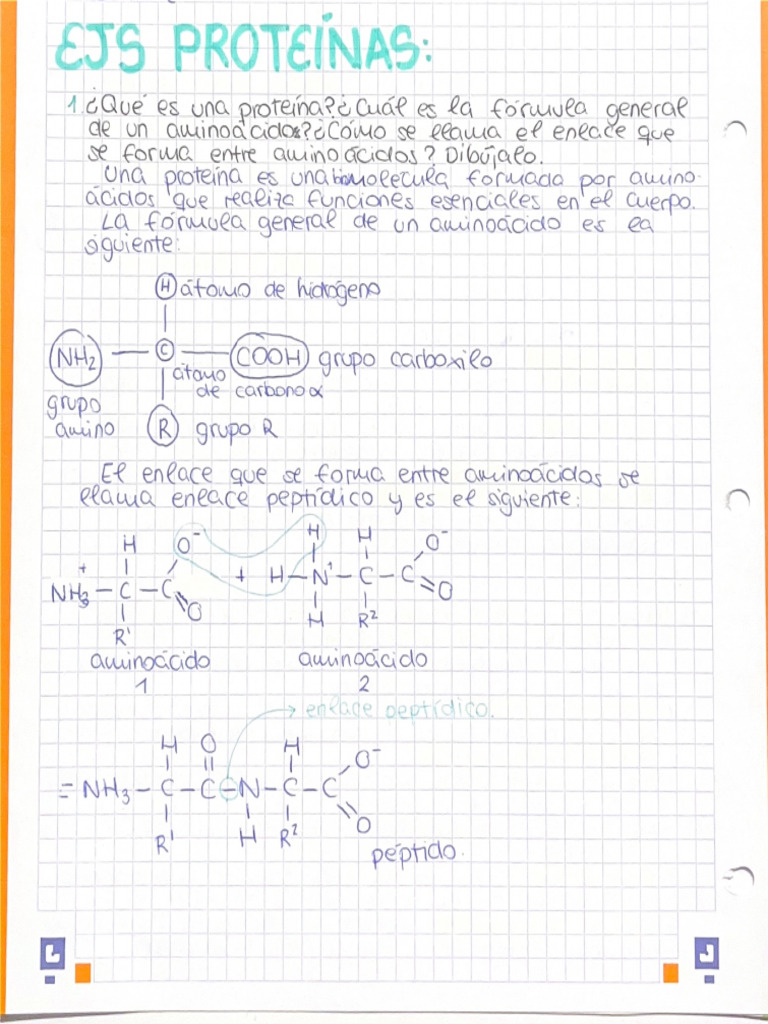 EJS PROTEÍNAS:
1. ¿Qué es una proteína? ¿Cuál es la fórmula general
de un aminoácidos? ¿Cómo se llama el enlace que
se forma entre aminoácidos? Dibújalo.
Una proteína es una biomolecula formada por amino-
ácidos que realiza funciones esenciales en el cuerpo.
La fórmula general de un aminoácido es la
siguiente:
H átomo de hidrógeno
NH2 — C — COOH grupo carboxilo
átomo
de carbono α
grupo
amino
R grupo R
El enlace que se forma entre aminoácidos se
llama enlace peptídico y es el siguiente:
H O⁻ H H O⁻
NH3⁺ – C – C + H – N⁺ – C – C
O O
R¹ H R²
aminoácido aminoácido
1 2
→ enlace peptídico.
H O H O⁻
= NH3 – C – C – N – C – C
O
R¹ H R²
péptido.